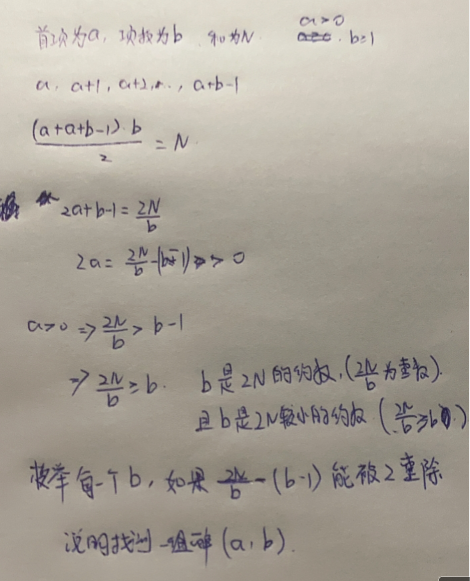 首项为a, 项数为b 和为N. a>0
b≥1
a, a+1, a+2, ..., a+b-1
(a+a+b-1)·b / 2 = N
2a+b-1 = 2N/b
2a = 2N/b -(b-1) > 0
a>0 => 2N/b > b-1
=> 2N/b ≥ b. b是2N的约数, (2N/b为整数).
且b是2N较小的约数 (2N/b ≥ b).
枚举每一个b, 如果 2N/b -(b-1) 能被2整除
说明找到一组解 (a, b).